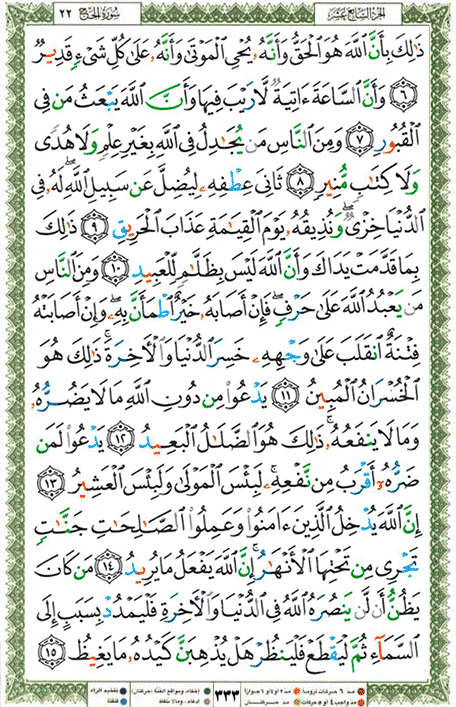 الجزء السابع عشر سورة الحج ٢٢
ذَٰلِكَ بِأَنَّ ٱللَّهَ هُوَ ٱلْحَقُّ وَأَنَّهُۥ يُحْيِ ٱلْمَوْتَىٰ وَأَنَّهُۥ عَلَىٰ كُلِّ شَىْءٍ قَدِيرٌ
٦ وَأَنَّ ٱلسَّاعَةَ ءَاتِيَةٌ لَّا رَيْبَ فِيهَا وَأَنَّ ٱللَّهَ يَبْعَثُ مَن فِى
ٱلْقُبُورِ ٧ وَمِنَ ٱلنَّاسِ مَن يُجَٰدِلُ فِى ٱللَّهِ بِغَيْرِ عِلْمٍ وَلَا هُدًى
وَلَا كِتَٰبٍ مُّنِيرٍ ٨ ثَانِىَ عِطْفِهِۦ لِيُضِلَّ عَن سَبِيلِ ٱللَّهِ ۖ لَهُۥ فِى
ٱلدُّنْيَا خِزْىٌ ۖ وَنُذِيقُهُۥ يَوْمَ ٱلْقِيَٰمَةِ عَذَابَ ٱلْحَرِيقِ ٩ ذَٰلِكَ
بِمَا قَدَّمَتْ يَدَاكَ وَأَنَّ ٱللَّهَ لَيْسَ بِظَلَّٰمٍ لِّلْعَبِيدِ ١٠ وَمِنَ ٱلنَّاسِ
مَن يَعْبُدُ ٱللَّهَ عَلَىٰ حَرْفٍ ۖ فَإِنْ أَصَابَهُۥ خَيْرٌ ٱطْمَأَنَّ بِهِۦ ۖ وَإِنْ أَصَابَتْهُ
فِتْنَةٌ ٱنقَلَبَ عَلَىٰ وَجْهِهِۦ خَسِرَ ٱلدُّنْيَا وَٱلْءَاخِرَةَ ۚ ذَٰلِكَ هُوَ
ٱلْخُسْرَانُ ٱلْمُبِينُ ١١ يَدْعُوا۟ مِن دُونِ ٱللَّهِ مَا لَا يَضُرُّهُۥ
وَمَا لَا يَنفَعُهُۥ ۚ ذَٰلِكَ هُوَ ٱلضَّلَٰلُ ٱلْبَعِيدُ ١٢ يَدْعُوا۟ لَمَن
ضَرُّهُۥٓ أَقْرَبُ مِن نَّفْعِهِۦ ۚ لَبِئْسَ ٱلْمَوْلَىٰ وَلَبِئْسَ ٱلْعَشِيرُ ١٣
إِنَّ ٱللَّهَ يُدْخِلُ ٱلَّذِينَ ءَامَنُوا۟ وَعَمِلُوا۟ ٱلصَّٰلِحَٰتِ جَنَّٰتٍ
تَجْرِى مِن تَحْتِهَا ٱلْأَنْهَٰرُ ۚ إِنَّ ٱللَّهَ يَفْعَلُ مَا يُرِيدُ ١٤ مَن كَانَ
يَظُنُّ أَن لَّن يَنصُرَهُ ٱللَّهُ فِى ٱلدُّنْيَا وَٱلْءَاخِرَةِ فَلْيَمْدُدْ بِسَبَبٍ إِلَى
ٱلسَّمَآءِ ثُمَّ لْيَقْطَعْ فَلْيَنظُرْ هَلْ يُذْهِبَنَّ كَيْدُهُۥ مَا يَغِيظُ ١٥
مد ٦ حركات لزوماً مد ٢ او ٤ او ٦ جوازاً ٣٣٣ إخفاء، ومواقع الغنة (حركتان) تفخيم الراء
مد واجب ٤ او ٥ حركات مد حركتان إدغام، وما لا يلفظ قلقلة